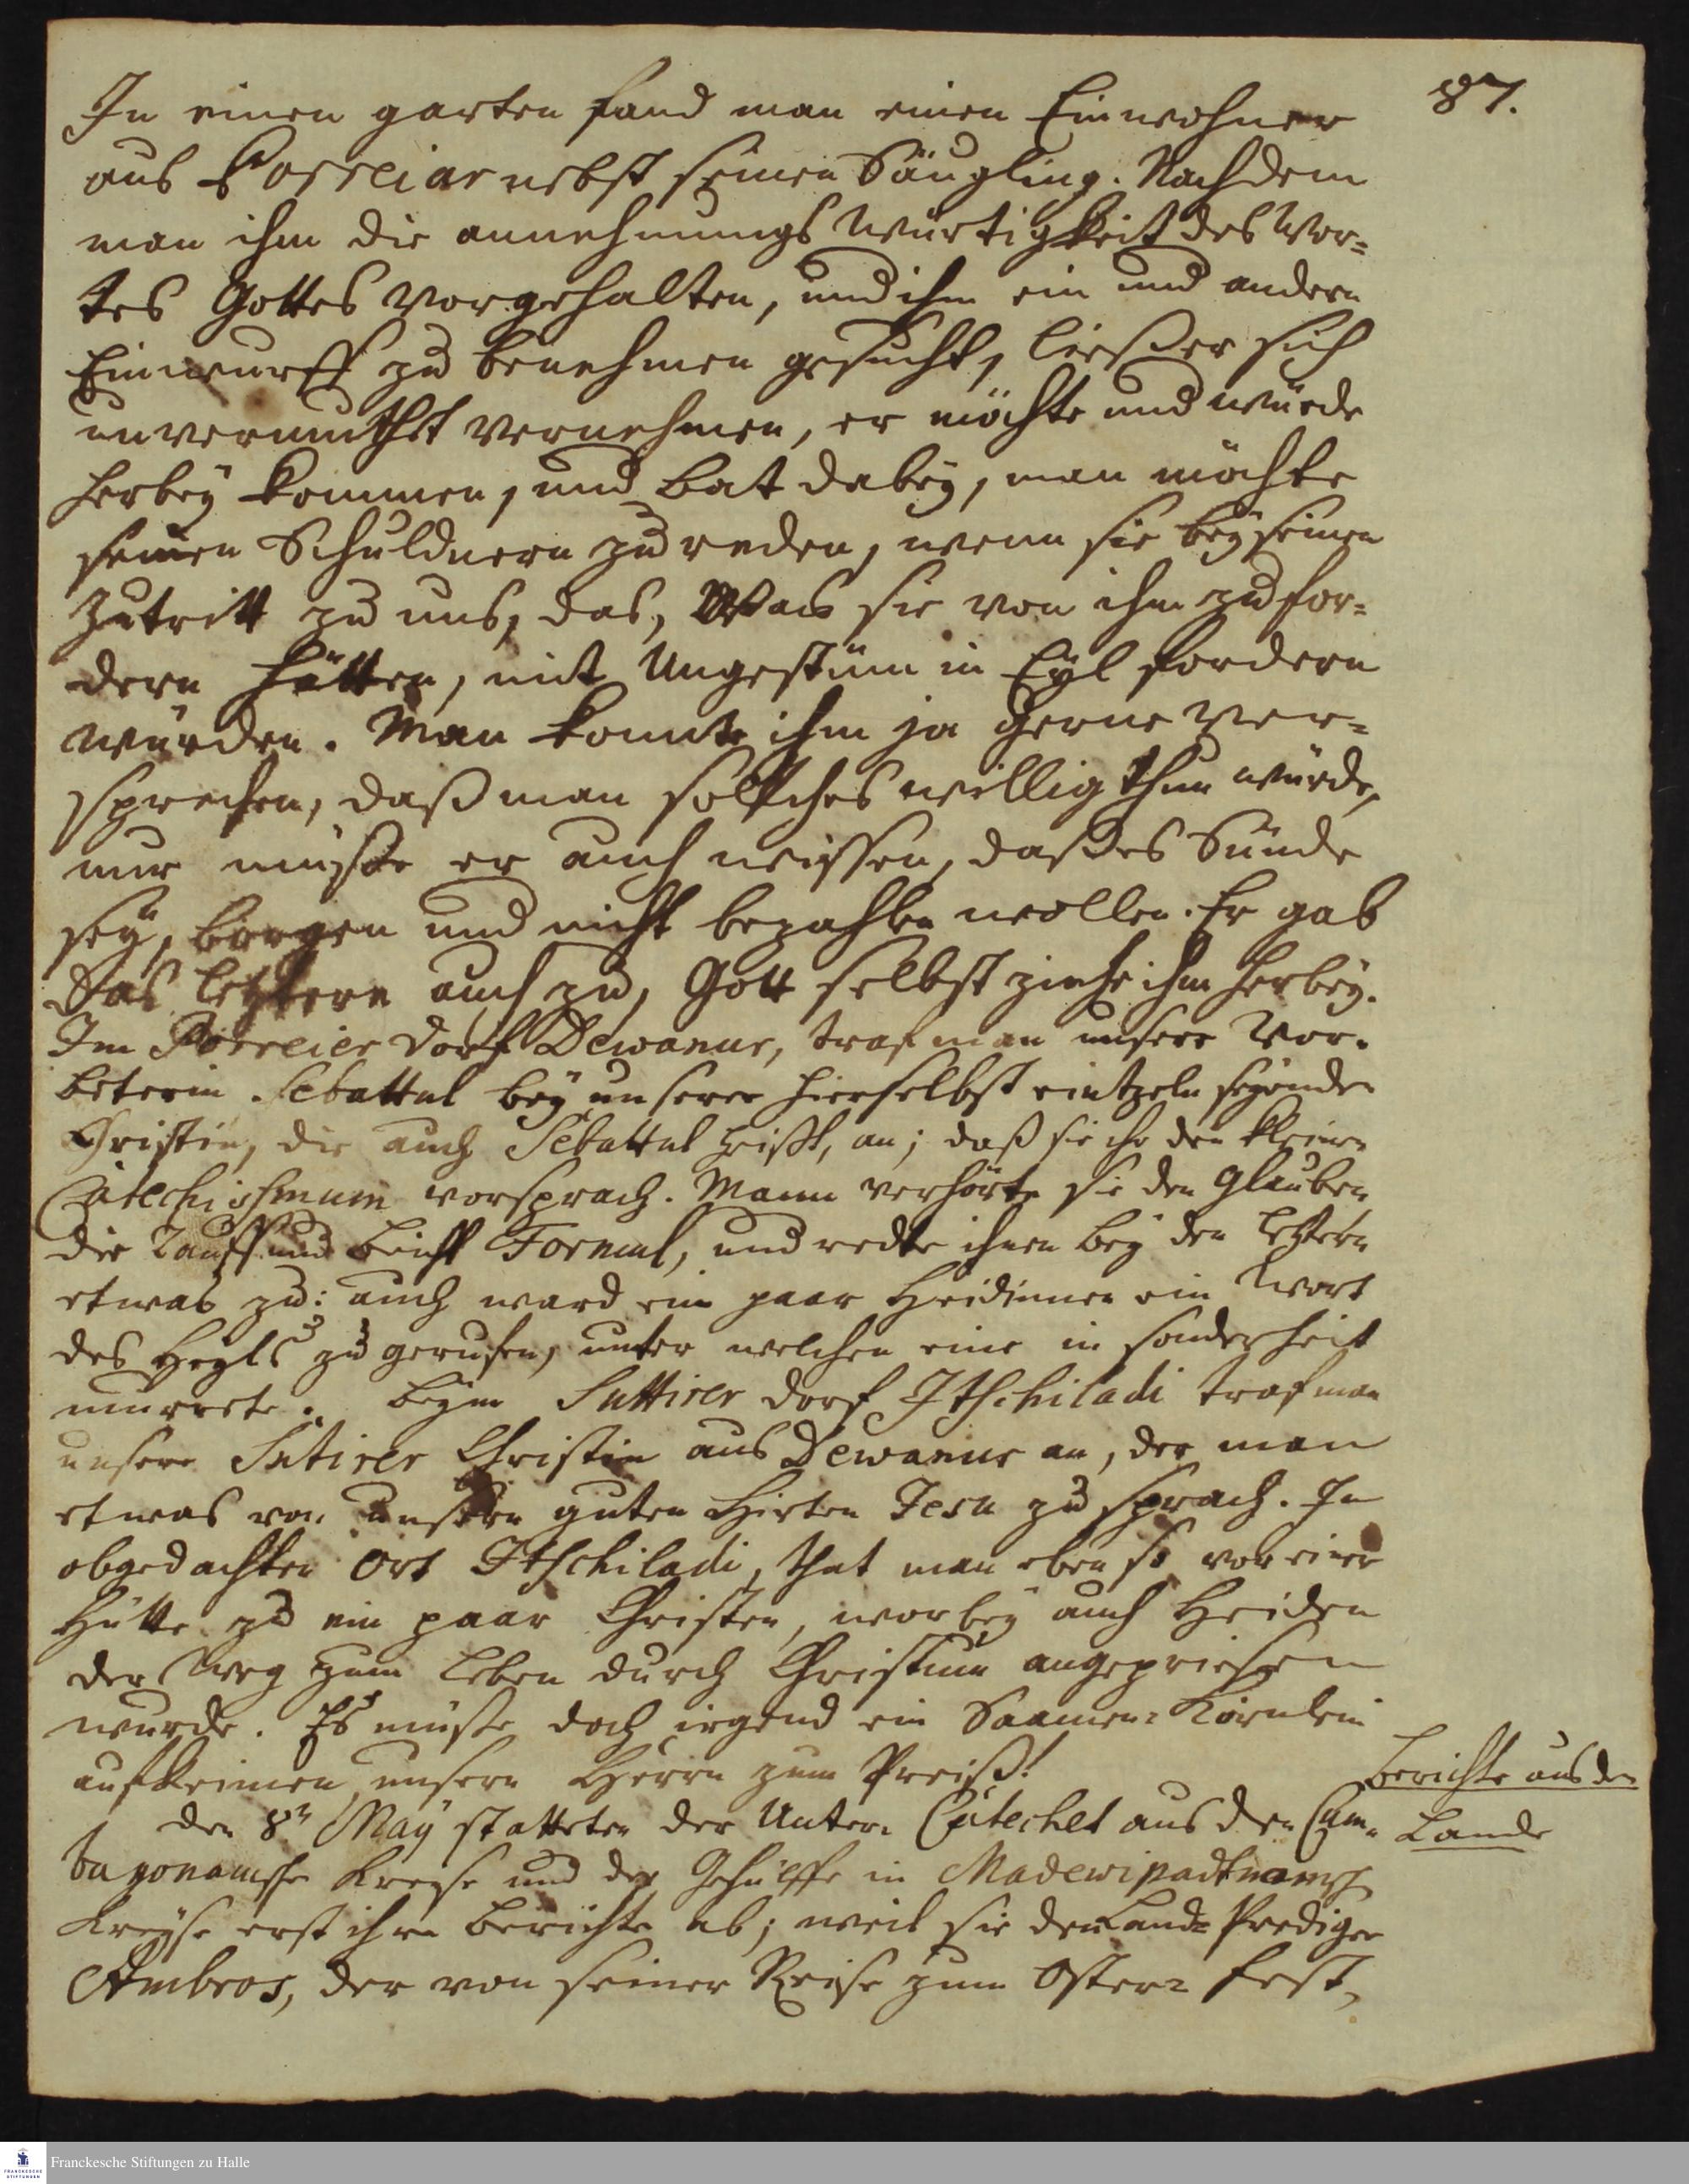 87.
In einen garten fand man einen Einwohner
aus Porreiar nebst seinen Säugling. Nachdem
man ihm die annehmungs Würtigkeit des Wor=
tes Gottes vorgehalten, und ihm ein und andern
Einwurff zu benehmen gesucht, ließ er sich
unvermuthet vernehmen, er möchte und würde
herbey kommen, und bat dabey, man möchte
seinen Schuldnern zu reden, wenn sie bey seinen
Zutritt zu uns, das, Was sie von ihm zu for=
dern hätten, mit Ungestüm in Eyl fordern
würden. Man konnte ihm ja gerne ver=
sprechen, daß man solches willig thun würde,
nur müste er auch wissen, daß es Sünde
sey, borgen und nicht bezahlen wollen. Er gab
das letztere auch zu, Gott selbst ziehe ihm herbey.
Im Porreier dorf Dewanur, traf man unsere Vor-
beterin Sebattal bey unserer hierselbst eintzeln seyenden
Christin, die auch Sebattal heißt, an; daß sie ihr den kleinen
Catechissmum vorsprach. Mann verhörte sie den Glauben
die Tauff und Beicht Formul, und redte ihnen bey den letztern
etwas zu: auch ward ein paar Heidinnen ein Wort
des Heyls zu gerufen, unter welchen eine in sonderheit
murrete. Beym Suttirer dorf Itschiladi traf man
unsere Sutirer Christin aus Dewanur an, der man
etwas von unsern guten Hirten Jesu zu sprach. In
obgedachten Ort Itschiladi, that man eben so vor einer
Hütte zu ein paar Christen, worbey auch Heiden
der Weg zum Leben durch Christum angepriesen
wurde. Es müste doch irgend ein Saamen= Körnlein
aufkeimen unsern Herrn zum Preiß!
Berichte aus den
Lande
den 8n May statteten der Unter- Catechet aus den Cum-
bagonamsche Kreyse und der Gehülffe in Madewipadtnamsch
Kreyse erst ihre Berichte ab; weil sie den Land= Prediger
Ambros, der von seiner Reise zum Oster= fest,
Franckesche Stiftungen zu Halle
FRANCKESCHE
STIFTUNGEN